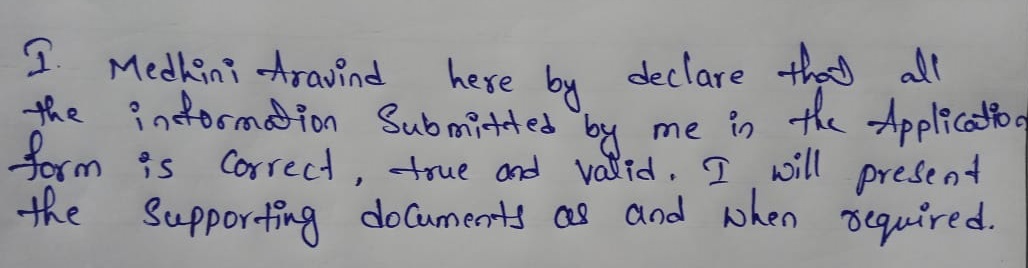 I. Medhini Aravind here by declare that all
the information Submitted by me in the Application
form is Correct, true and valid. I will present
the Supporting documents as and when required.